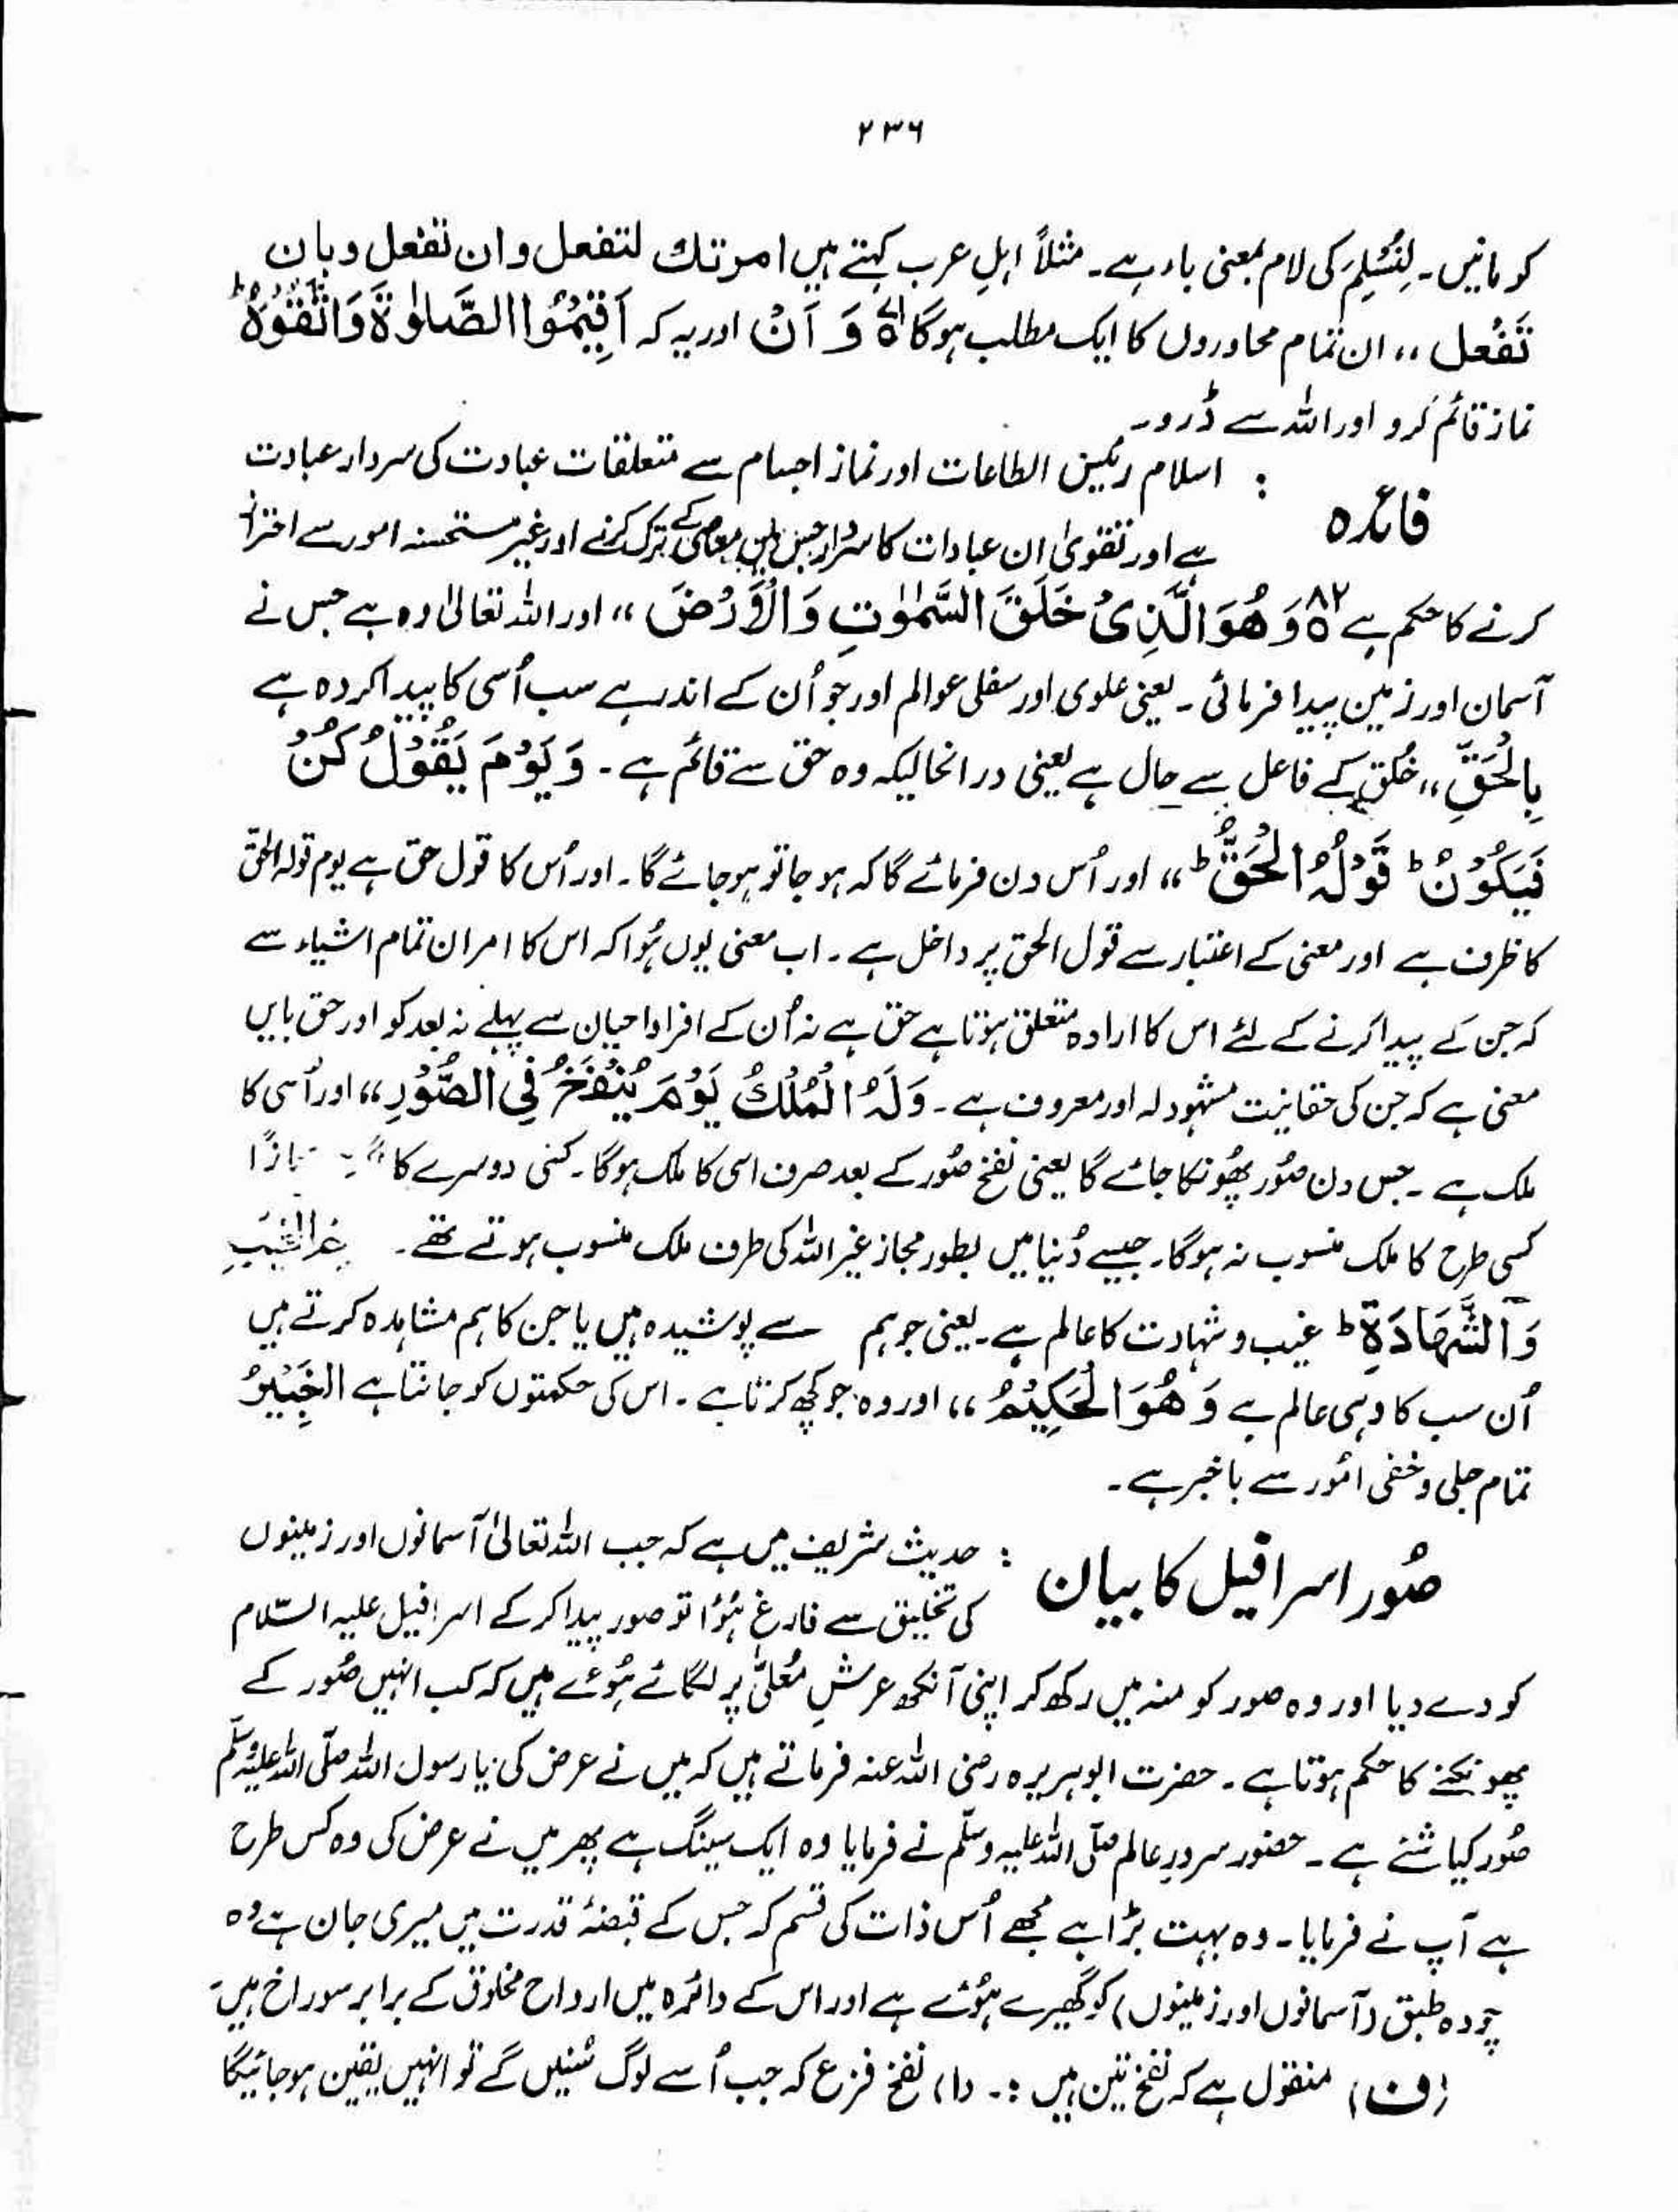 ۲۳۶
کو مانیں۔ لِنُسْلِمَ کی لام بمعنی باء ہے۔ مثلاً اہلِ عرب کہتے ہیں امرتك لتفعل وان تفعل وبان
تَفْعل ،، ان تمام محاوروں کا ایک مطلب ہوگا وَ اَنْ اور یہ کہ اَقِيْمُوا الصَّلٰوةَ وَاتَّقُوْهُ ط
نماز قائم کرو اور اللہ سے ڈرو۔
فائدہ : اسلام رئیس الطاعات اور نماز اجسام سے متعلقات عبادت کی سردار عبادت
ہے اور تقویٰ ان عبادات کا سردار جس میں معاصی کے ترک کرنے اور غیر مستحسنہ امور سے احتراز
کرنے کا حکم ہے ۸۲ وَهُوَ الَّذِىْ خَلَقَ السَّمٰوٰتِ وَالْاَرْضَ ،، اور اللہ تعالیٰ وہ ہے جس نے
آسمان اور زمین پیدا فرمائی ۔ یعنی علوی اور سفلی عوالم اور جو اُن کے اندر ہے سب اُسی کا پیدا کردہ ہے
بِالْحَقِّ ،، خلق کے فاعل سے حال ہے یعنی در انحالیکہ وہ حق سے قائم ہے ۔ وَيَوْمَ يَقُوْلُ كُنْ
فَيَكُوْنُ ط قَوْلُهُ الْحَقُّ ط ،، اور اُس دن فرمائے گا کہ ہو جا تو ہو جائے گا۔ اور اُس کا قول حق ہے یوم قولہ الحق
کا ظرف ہے اور معنی کے اعتبار سے قول الحق پر داخل ہے ۔ اب معنی یوں ہُوا کہ اس کا امر ان تمام اشیاء سے
کہ جن کے پیدا کرنے کے لئے اس کا ارادہ متعلق ہوتا ہے حق ہے نہ اُن کے افراد احیان سے پہلے نہ بعد کو اور حق بایں
معنی ہے کہ جن کی حقانیت مشہود لہ اور معروف ہے ۔ وَلَهُ الْمُلْكُ يَوْمَ يُنْفَخُ فِى الصُّوْرِ ،، اور اُسی کا
ملک ہے ۔ جس دن صُور پھُونکا جائے گا یعنی نفخ صُور کے بعد صرف اسی کا ملک ہوگا ۔ کسی دوسرے کا
کسی طرح کا ملک منسوب نہ ہوگا۔ جیسے دُنیا میں بطور مجاز غیر اللہ کی طرف ملک منسوب ہوتے تھے ۔
وَالشَّهَادَةِ ط غیب و شہادت کا عالم ہے ۔ یعنی جو ہم سے پوشیدہ ہیں یا جن کا ہم مشاہدہ کرتے ہیں
اُن سب کا وہی عالم ہے وَهُوَ الْحَكِيْمُ ،، اور وہ جو کچھ کرتا ہے ۔ اس کی حکمتوں کو جانتا ہے الْخَبِيْرُ
تمام جلی و خفی اُمور سے باخبر ہے ۔
صُور اسرافیل کا بیان : حدیث شریف میں ہے کہ جب اللہ تعالیٰ آسمانوں اور زمینوں
کی تخلیق سے فارغ ہُوا تو صور پیدا کر کے اسرافیل علیہ السّلام
کو دے دیا اور وہ صور کو منہ میں رکھ کر اپنی آنکھ عرشِ مُعلیّٰ پر لگائے ہُوئے ہیں کہ کب انہیں صُور کے
پھونکنے کا حکم ہوتا ہے ۔ حضرت ابوہریرہ رضی اللہ عنہ فرماتے ہیں کہ میں نے عرض کی یا رسول اللہ صلّی اللہ علیہ وسلّم
صُور کیا شئے ہے ۔ حضور سرورِ عالم صلّی اللہ علیہ وسلّم نے فرمایا وہ ایک سینگ ہے پھر میں نے عرض کی وہ کس طرح
ہے آپ نے فرمایا ۔ وہ بہت بڑا ہے مجھے اُس ذات کی قسم کہ جس کے قبضۂ قدرت میں میری جان ہے وہ
چودہ طبق (آسمانوں اور زمینوں) کو گھیرے ہُوئے ہے اور اس کے دائرہ میں ارواح مخلوق کے برابر سوراخ ہیں۔
(ف) منقول ہے کہ نفخ تین ہیں :۔ (۱) نفخ فزع کہ جب اُسے لوگ سُنیں گے تو انہیں یقین ہو جائیگا